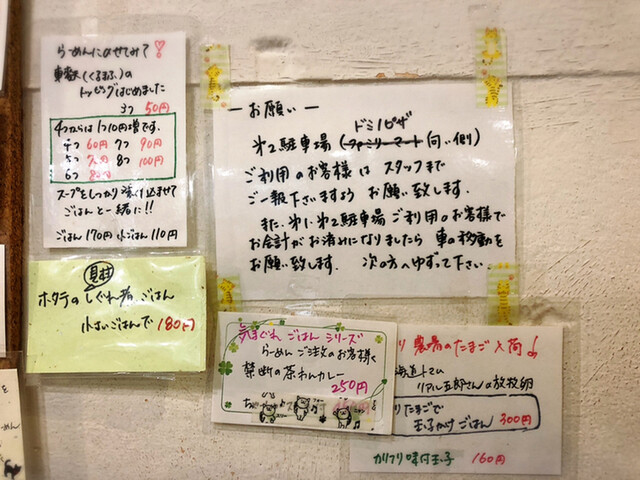 らーめんにのせてみて?!
車麩(くるまふ)の
トッピングはじめました
3つ 50円
4つからは1つ10円増です。
4つ 60円 7つ 90円
5つ 70円 8つ 100円
6つ 80円
スープをしっかり
ごはんと一緒に!!
ごはん170円 小ごはん110円
ホタテのしぐれ煮ごはん
小さいごはんで180円
ーお願いー
ドミノピザ
第2駐車場(ファミリーマート向い側)
ご利用のお客様はスタッフまで
ご一報下さいますようお願い致します。
また、第1・第2駐車場ご利用のお客様で
お会計がお済みになりましたら車の移動を
お願い致します。次の方へゆずって下さい。
気まぐれごはんシリーズ
らーめんご注文のお客様へ
禁断の茶わんカレー
250円
農場のたまご入荷♪
海道トマム
リアル五郎さんの放牧卵
たまごで
玉子かけごはん 300円
カリフリ味付玉子 160円